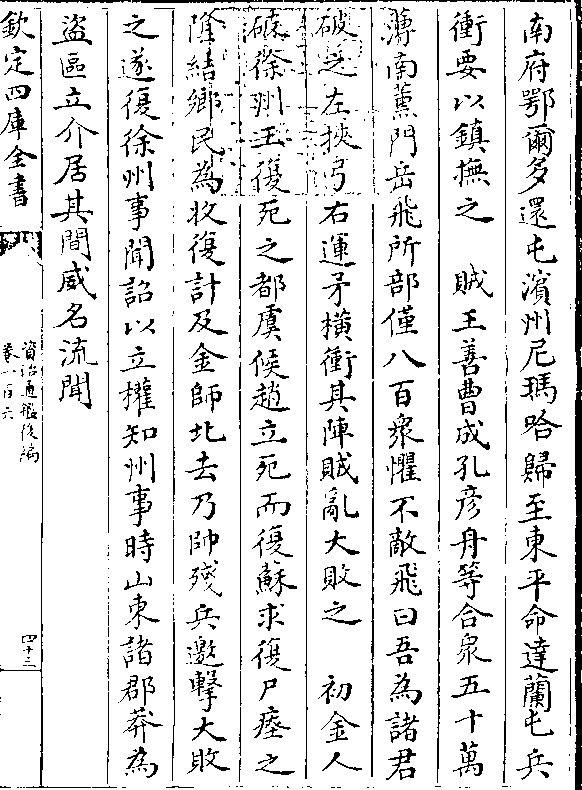 南府鄂爾多還屯濱州尼瑪哈歸至東平命達蘭屯兵
衝要以鎮撫之　賊王善曹成孔彥舟等合衆五十萬
薄南薰門岳飛所部僅八百衆懼不敵飛曰吾為諸君
破之左挾弓右運矛橫衝其陣賊亂大敗之　初金人
破徐州王復死之都虞候趙立死而復蘇求復尸瘞之
隂結鄉民為收復計及金師北去乃帥殘兵邀擊大敗
之遂復徐州事聞詔以立權知州事時山東諸郡莽為
盜區立介居其間威名流聞
欽定四庫全書
資治通鑑後編
卷一百六
四十三